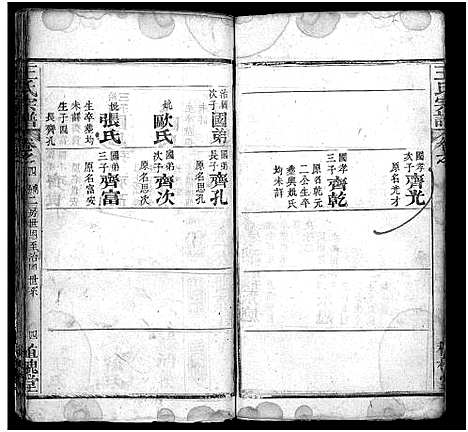 王氏宗譜
國孝
次子齊光
原名光才
國孝
三子齊乾
原名乾元
公生卒
葬與姚氏
均未詳
治
次子國弟
妣歐氏
妣張氏
生卒葬均
未詳
生子四
長齊孔
國弟
長子齊孔
國弟
次子齊次
原名思次
國弟
三子齊富
原名富安
王氏宗譜
卷之四
二房世
至治
世系
四
植槐堂